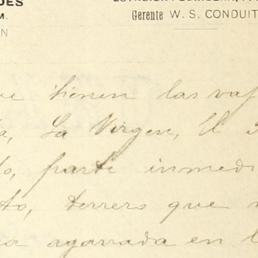 DES
M.
Gerente W. S. CONDUIT
que tienen las vap
La Virgen, El
parte inmedi
to, terrero que
agarrada en l